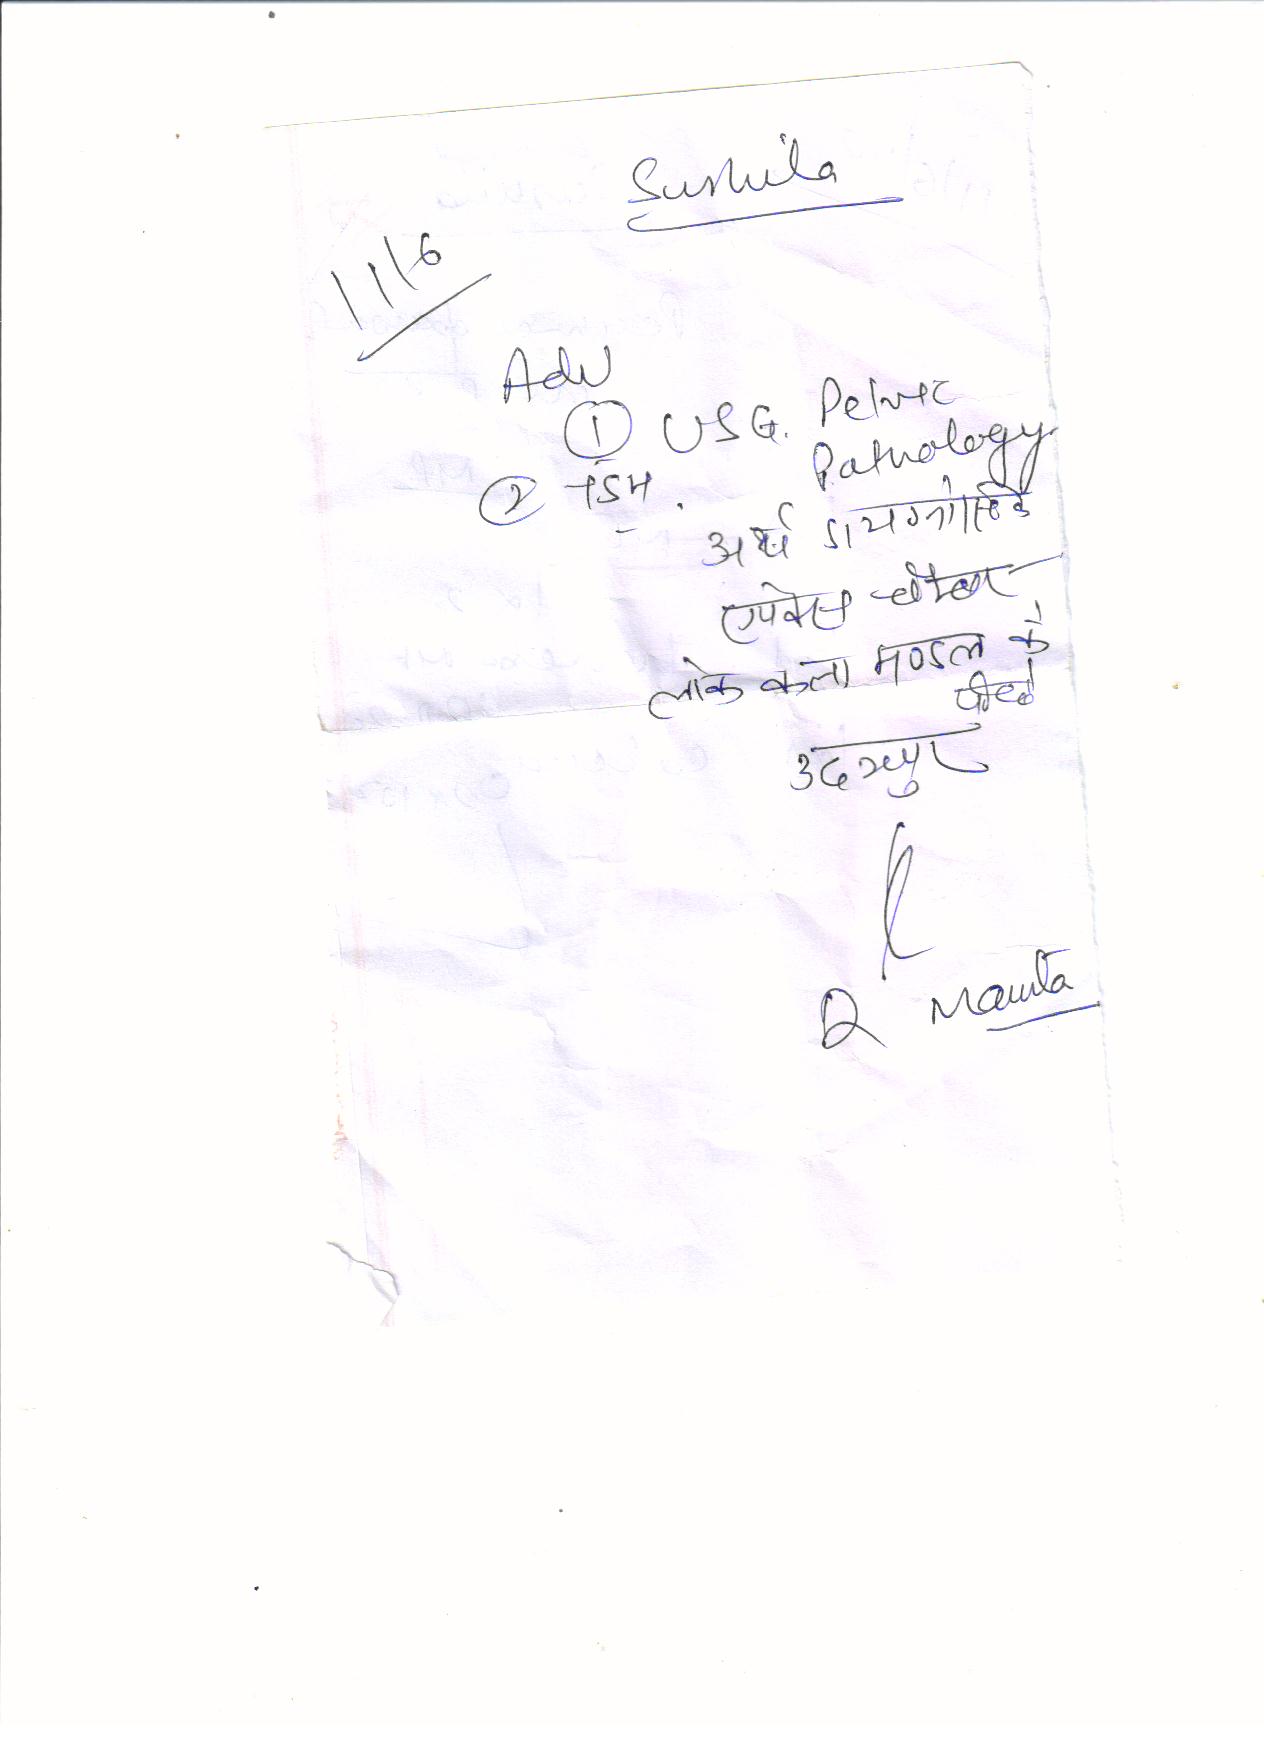 Sushila
11/6
Adv
① USG. Pelvic
Pathology
② TSH.
अर्थ डायग्नोस्टिक
एपेक्स चेम्बर
लोक कला मण्डल के
पीछे
उदयपुर
D Mamta